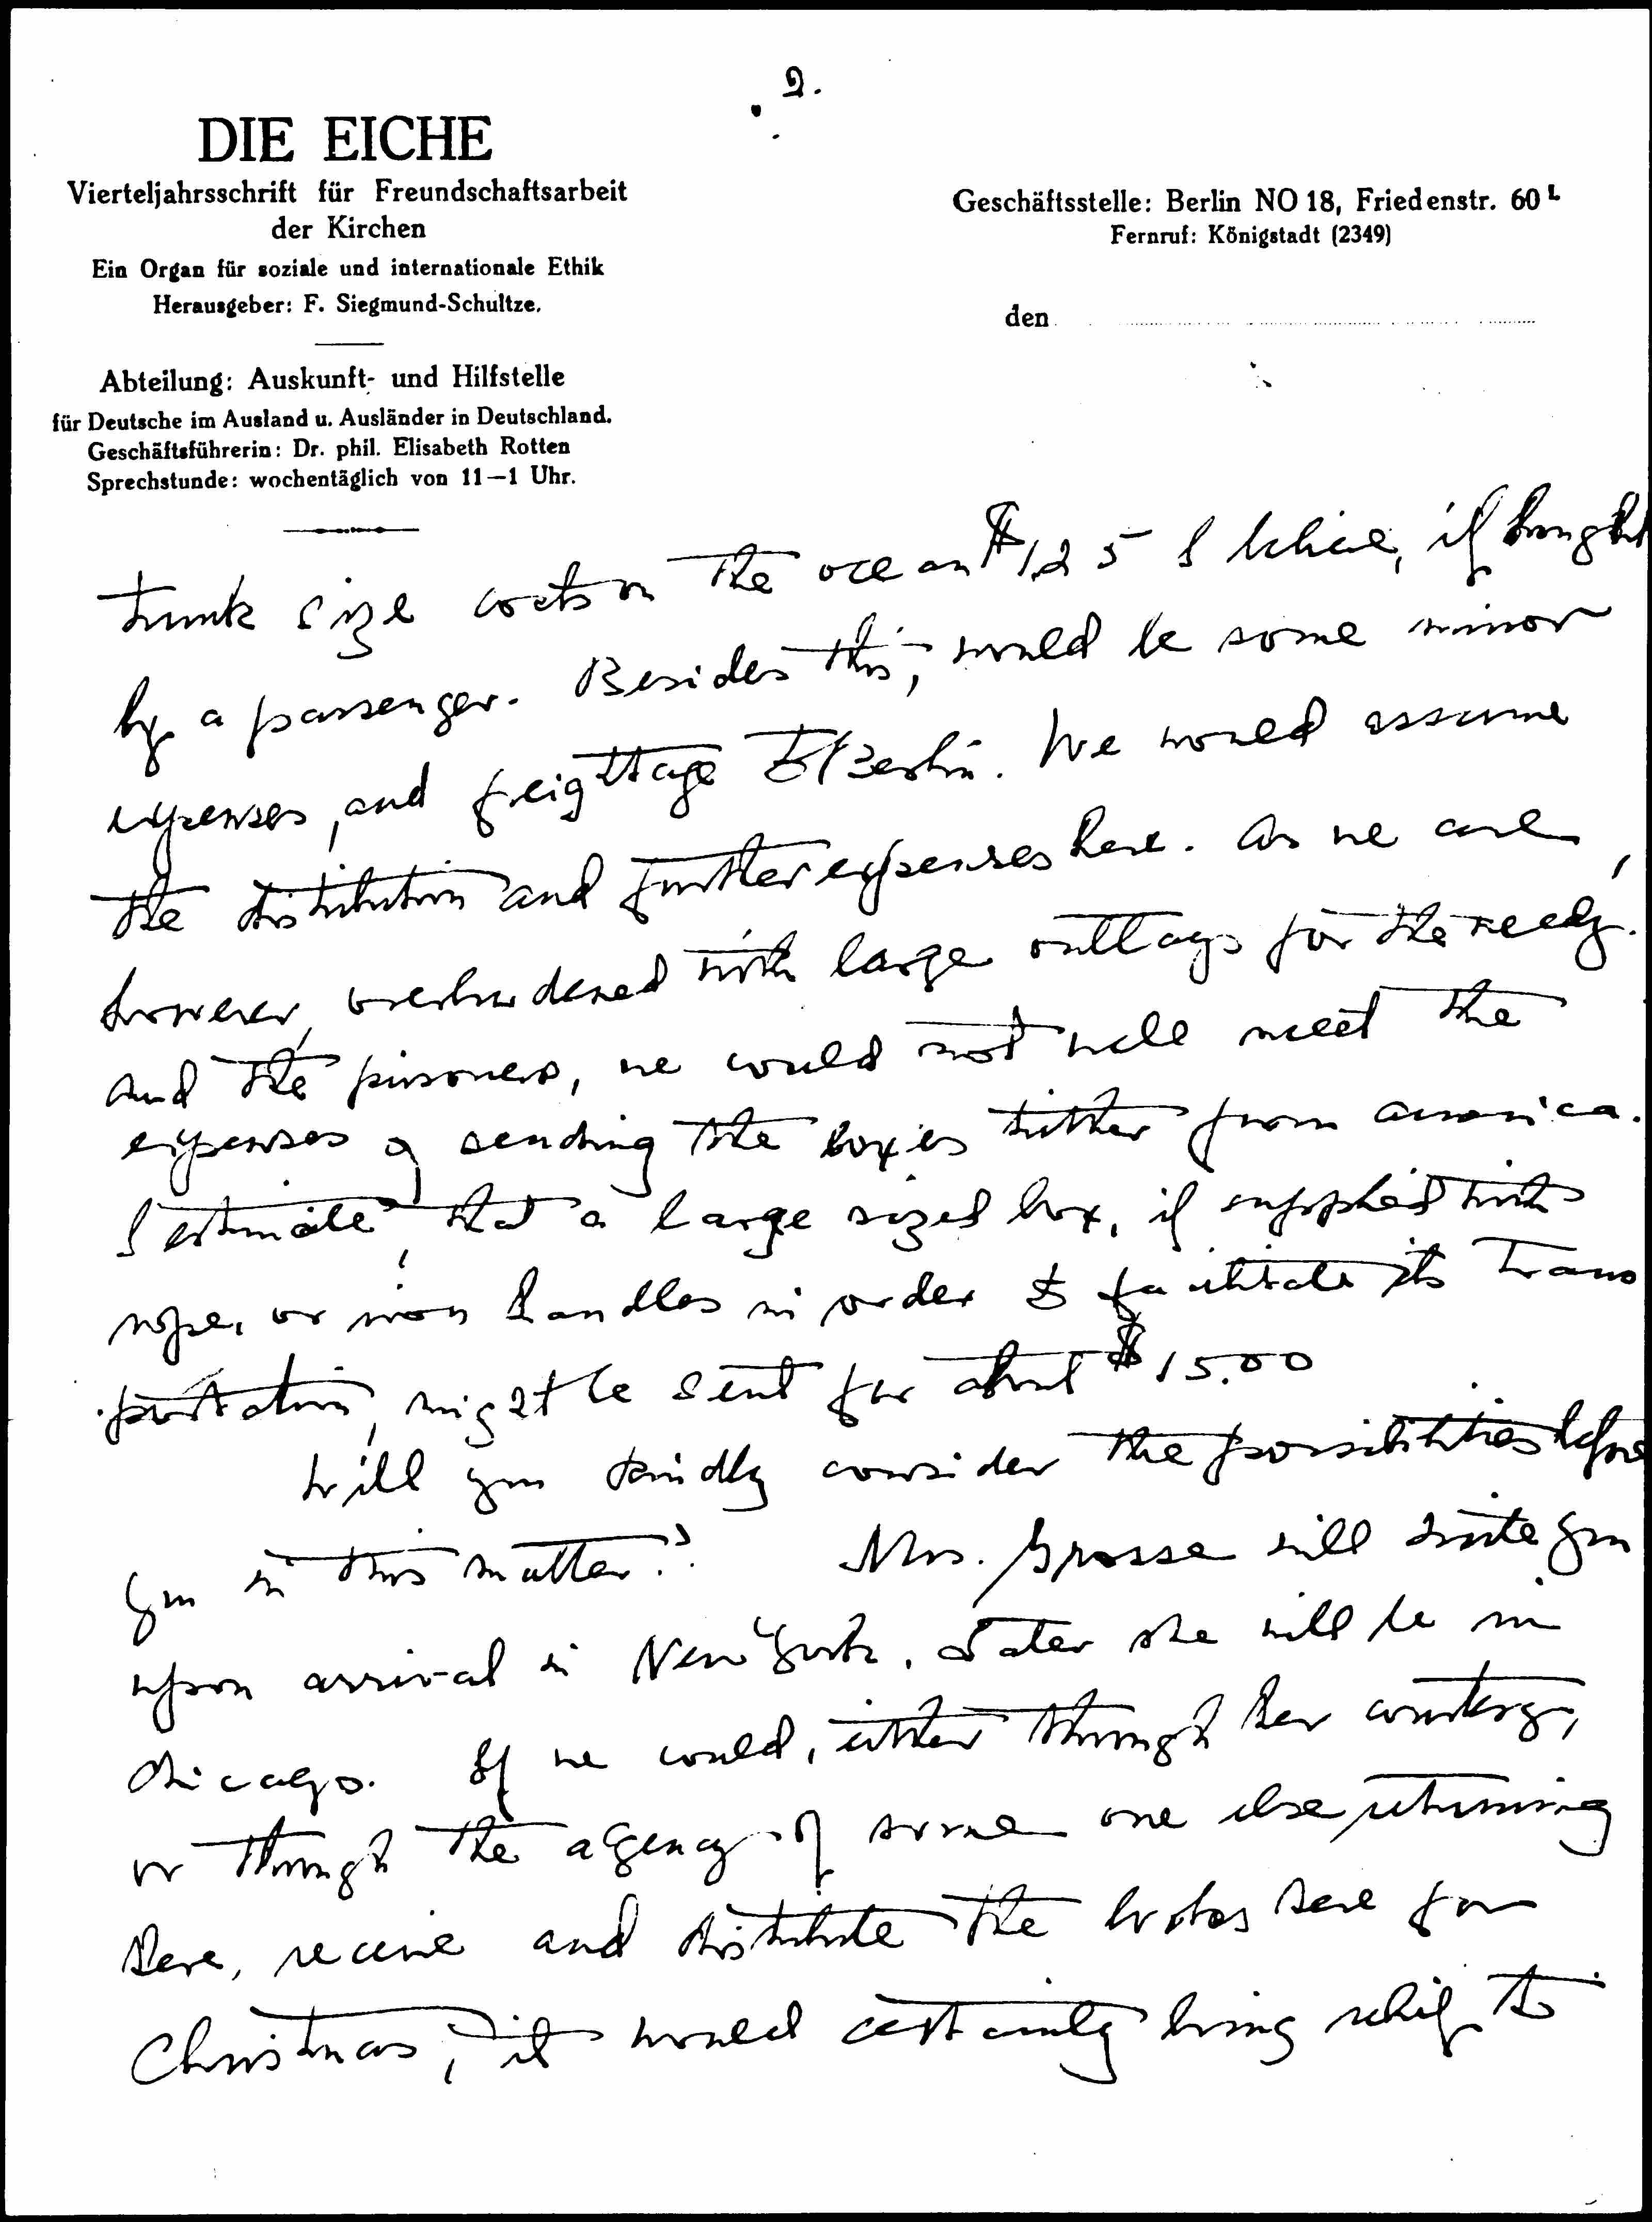 2.
DIE EICHE
Vierteljahrsschrift für Freundschaftsarbeit
der Kirchen
Ein Organ für soziale und internationale Ethik
Herausgeber: F. Siegmund-Schultze.
Abteilung: Auskunft- und Hilfstelle
für Deutsche im Ausland u. Ausländer in Deutschland.
Geschäftsführerin: Dr. phil. Elisabeth Rotten
Sprechstunde: wochentäglich von 11—1 Uhr.
Geschäftsstelle: Berlin NO 18, Friedenstr. 60 L
Fernruf: Königstadt (2349)
den
trunk size costs on the ocean $1,25 I believe, if brought
by a passenger. Besides this, would be some minor
expenses, and freightage to Berlin. We would assume
the distribution and further expenses here. As we are,
however, overburdened with large outlays for the needy
and the prisoners, we could not well meet the
expenses of sending the boxes hither from America.
I estimate, that a large sized box, if supplied with
rope, or iron handles in order to facilitate its trans
portation, might be sent for about $15.00
Will you kindly consider the possibilities before
you in this matter? Mrs. Grosse will write you
upon arrival in New York. Later she will be in
Chicago. If we could, either through her courtesy,
or through the agency of some one else returning
here, receive and distribute the boxes here for
Christmas, it would certainly bring relief to